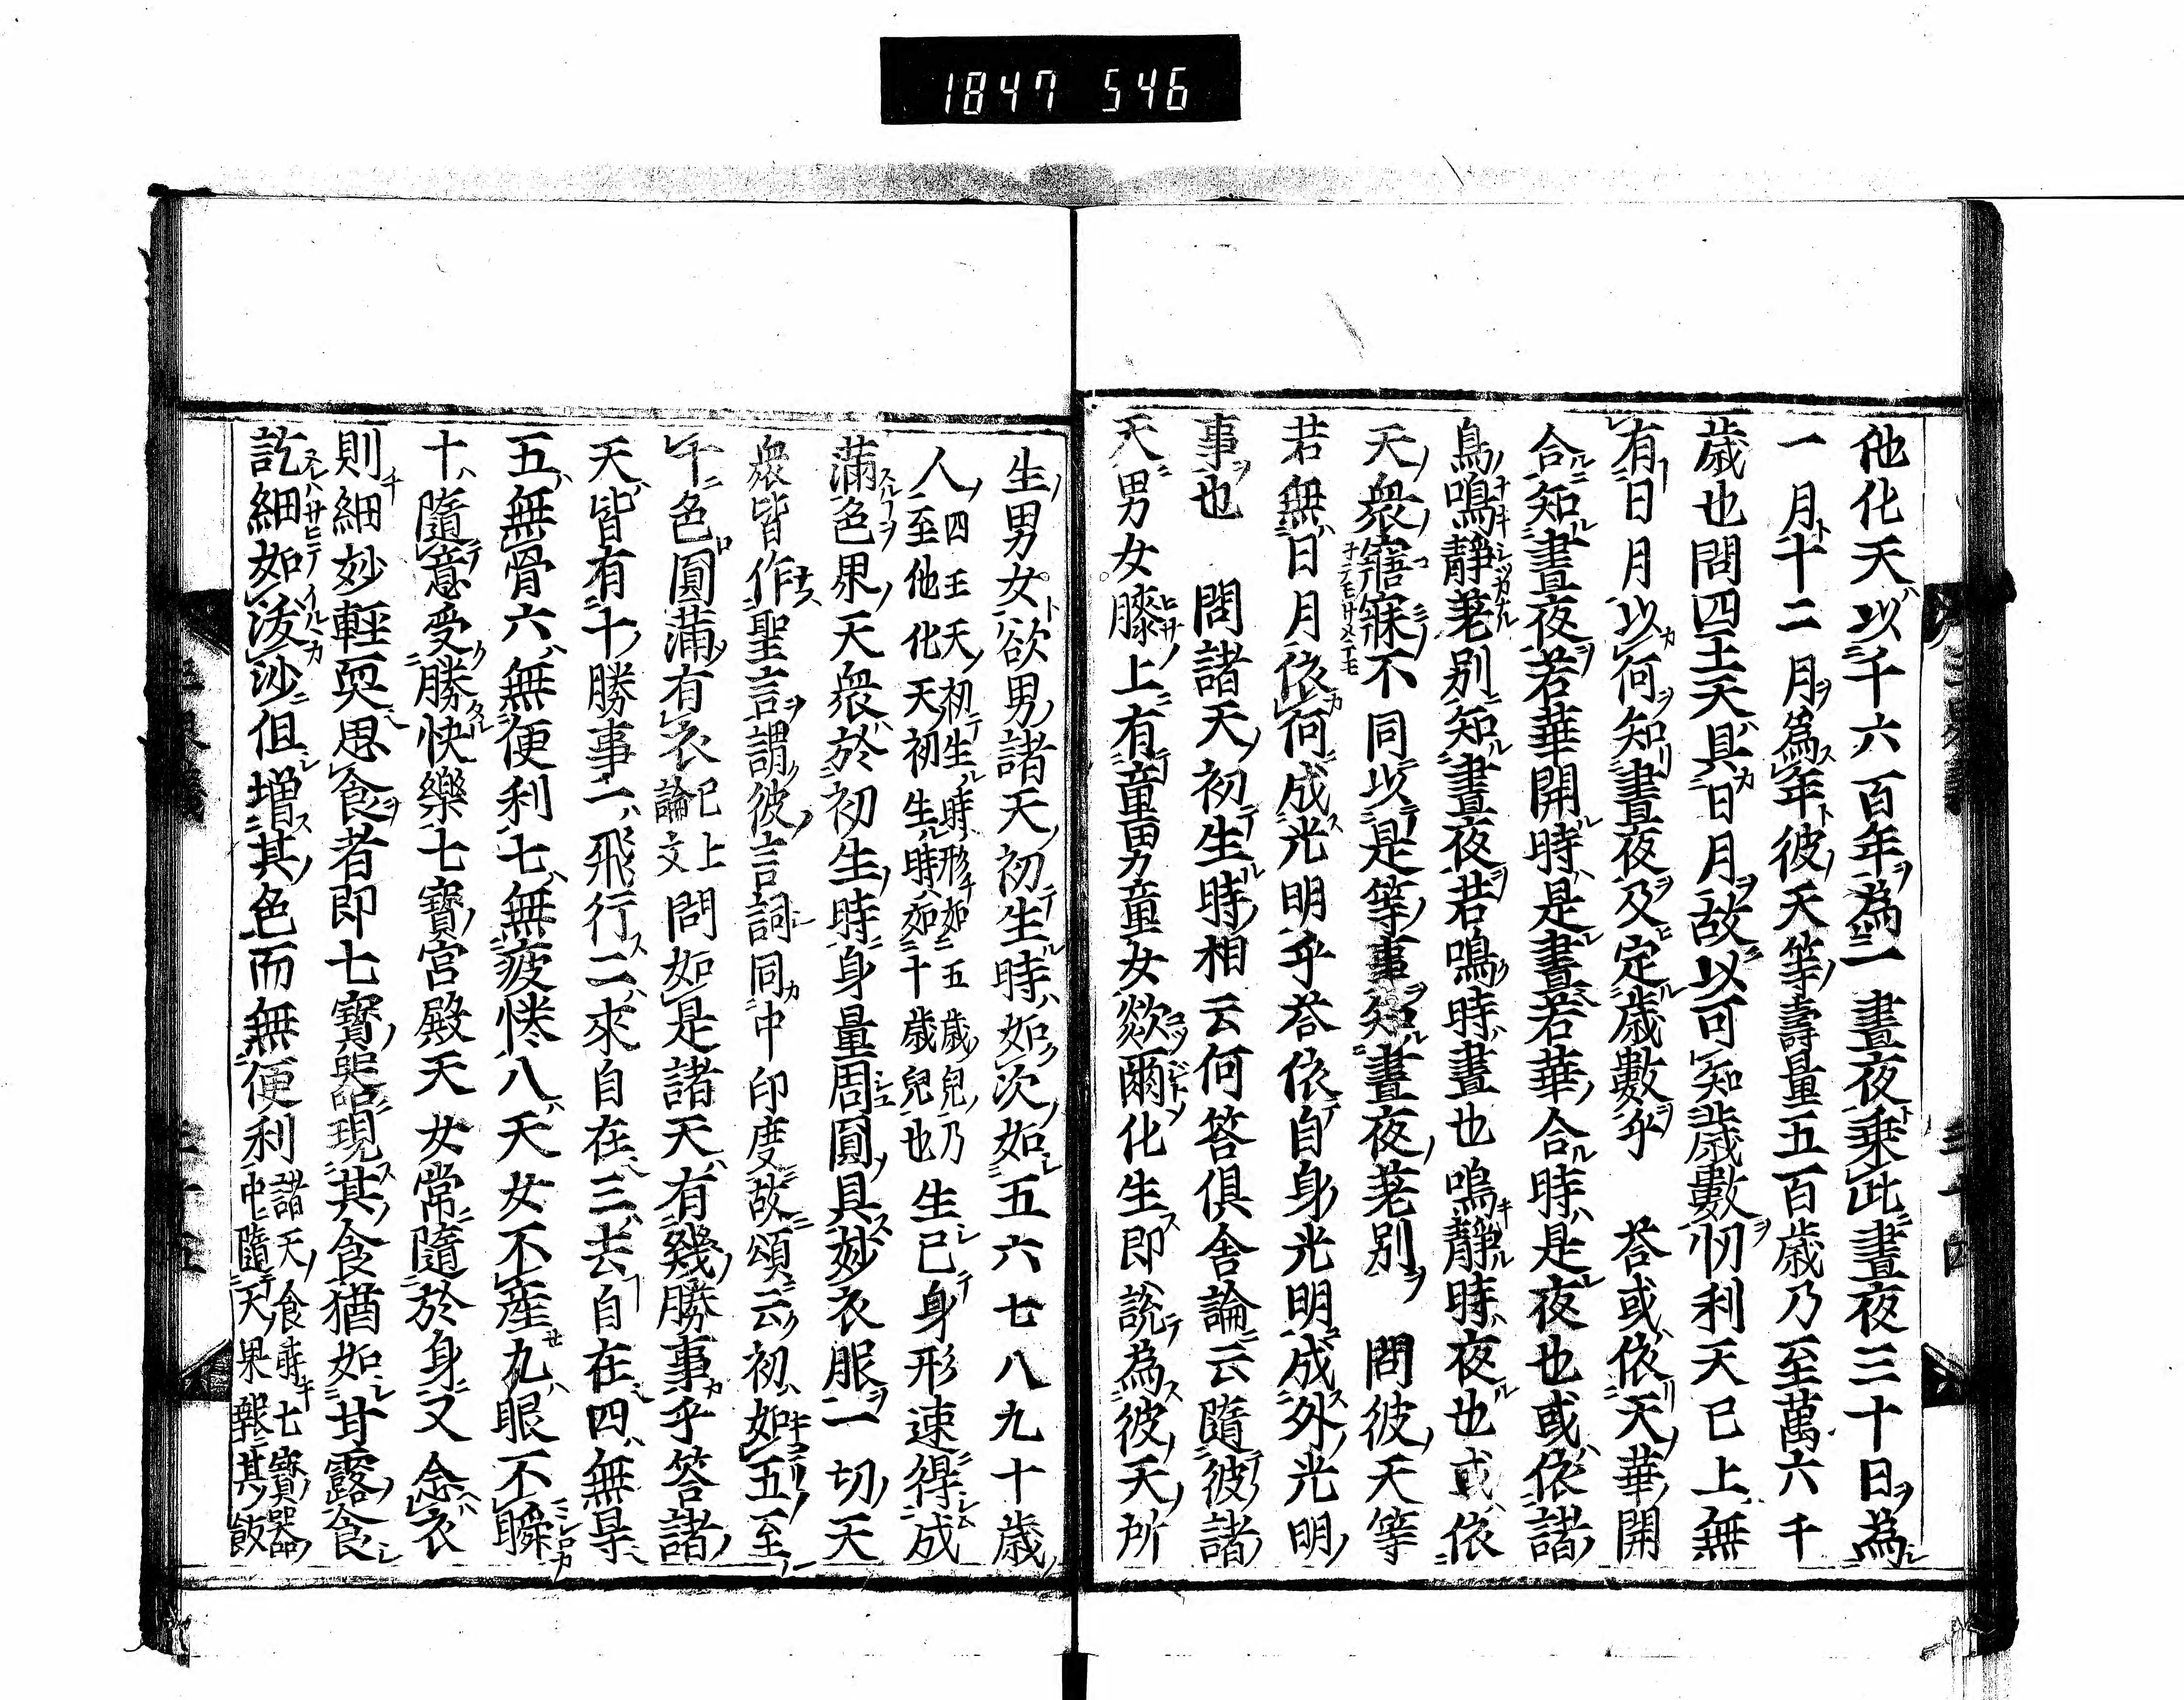 1847 546
他化天以千六百年為一晝夜乗此晝夜三十日為
一月十二月為年彼天等壽量五百歳乃至萬六千
歳也問四王天具日月故以可知歳數忉利天已上無
有日月以何知晝夜及定歳數乎 荅或依天華開
合知晝夜若華開時是晝若華合時是夜也或依諸
鳥鳴靜荖別知晝夜若鳴時晝也鳴靜時夜也或依
天衆寤寐不同以是等事知晝夜荖別 問彼天等
若無日月依何成光明乎荅依自身光明成外光明
事也 問諸天初生時相云何答俱舍論云隨彼諸
天男女膝上有童男童女欻爾化生即說為彼天所
生男女欲男諸天初生時如次如五六七八九十歳
人四王天初生時形如五歳兒乃至他化天初生時如十歳兒也生已身形速得成
滿色界天衆於初生時身量周圓具妙衣服一切天
衆皆作聖言謂彼言詞同中印度故頌云初如五至
十色圓滿有衣已上論文問如是諸天有幾勝事乎答諸
天皆有十勝事一飛行二來自在三去自在四無㝵
五無骨六無便利七無疲惓八天女不産九眼不瞬
十隨意受勝快樂七寶宮殿天女常隨於身又念衣
則細妙輕耎思食者即七寶器現其食猶如甘露食
訖細如浚沙但増其色而無便利諸天食時七寶器中隨天果報其飯